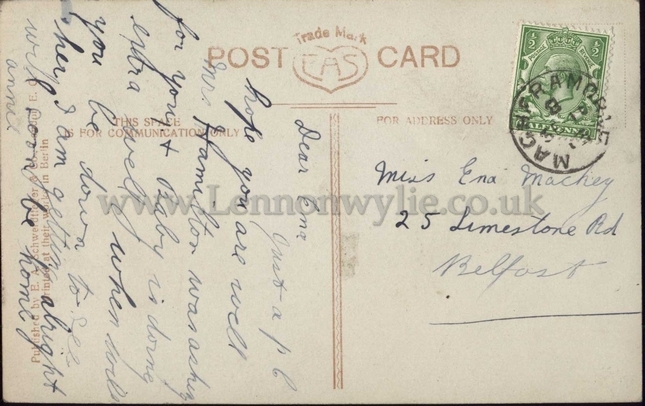 Trade Mark
POST CARD
EAS
THIS SPACE
IS FOR COMMUNICATION ONLY
FOR ADDRESS ONLY
Dear Ena
Just a p c
hope you are well
Mrs Hamilton was asking
for you & Baby is doing
extra well when will
you be down to see
her, I am getting alright
will soon be home
annie
Miss Ena Mackey
25 Limestone Rd
Belfast
½ ½
MAGHERAMORNE
www.Lennonwylie.co.uk
Published by E. A. Schwerdtfeger & Co., London E. C.
Printed at their works in Berlin